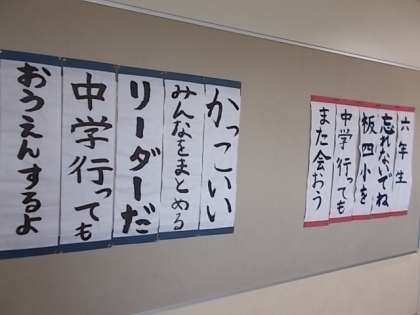 六年生
忘れないでね
板四小を
中学行っても
また会おう
かっこいい
みんなをまとめる
リーダーだ
中学行っても
おうえんするよ